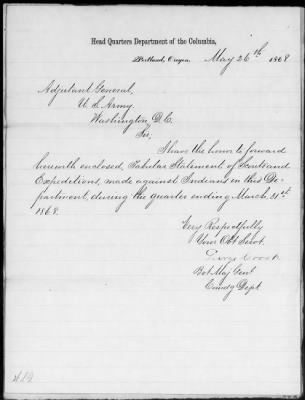 Head Quarters Department of the Columbia,
Portland, Oregon, May 26th 1868
Adjutant General,
U S Army.
Washington, D.C.
Sir,
I have the honor to forward
herewith enclosed, Tabular Statement of Scouts and
Expeditions, made against Indians in this De-
partment, during the quarter ending March 31st
1868.
Very Respectfully
Your Obt Servt.
George Crook
Bvt Maj Genl
Comdg Dept